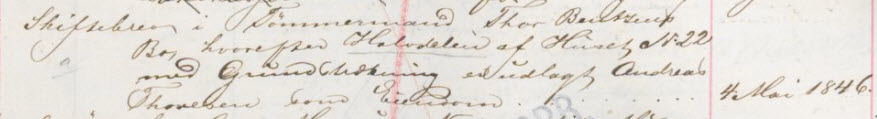 Skiftebrev i Tømmermand Thor Bentzens
Bo, hvorefter Halvdelen af Huset N. 22
med Grundstrækning er udlagt Andreas
Thoresen som Eiendom . . . . . . . . 4 Mai 1846.